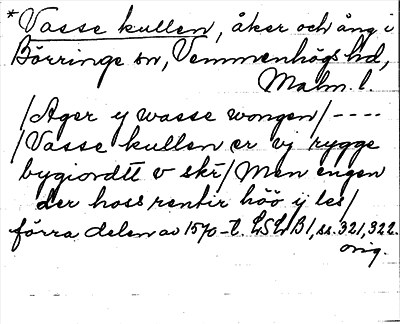 *Vasse kullen, åker och äng i
Börringe sn, Vemmenhögs hd,
Malm. l.
/Ager y wasse wongen/----
/Vasse kullen er vj rygge
bygiordtt v skr/ Men engen
der hoss rentir höö ij les/
förra delen av 1570-t. LSLB1, ss. 321, 322.
orig.